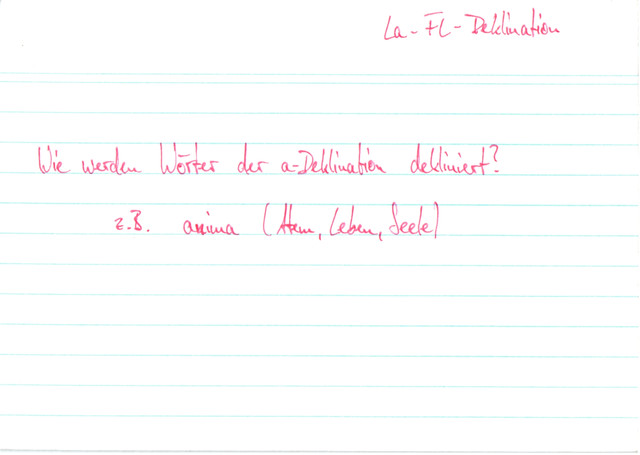 La-FL-Deklination
Wie werden Wörter der a-Deklination dekliniert?
z.B. anima (Atem, Leben, Seele)